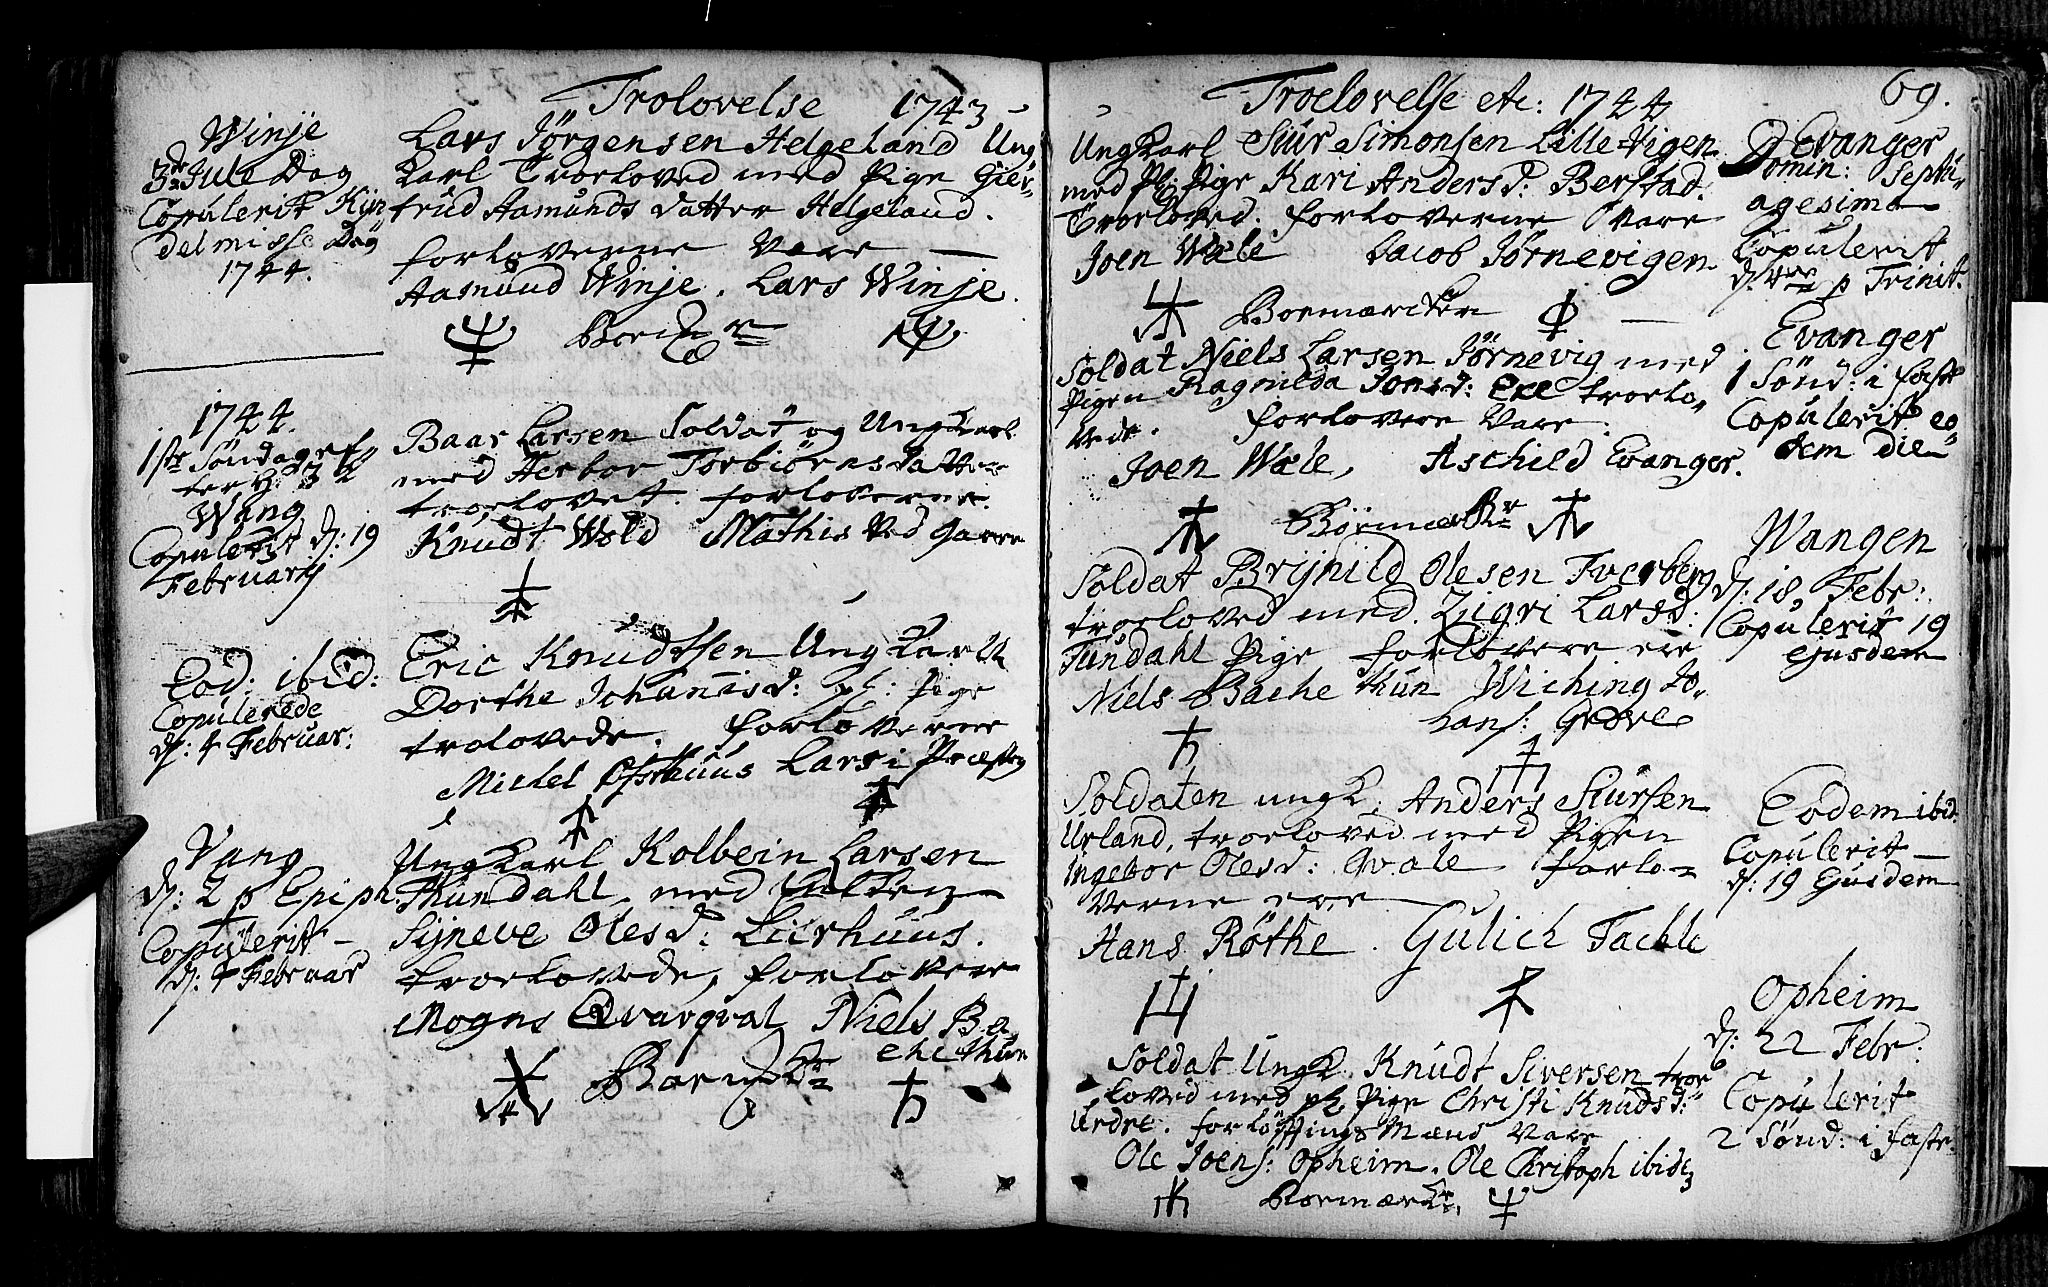 Trolovelse 1743
Winje
3die Jule Dag
Copulerit Kÿn
delmisse Dag
1744.
Lars Jörgensen Helgeland Ung
Karl Troeloved med Pige Gier-
trud Aamunds datter Helgeland.
forloverne vare —
Aasmund Winje. Lars Winje.
1744.
1ste Söndag ef-
ter H: 3 K
Wang
Copulerit d: 19
Februarij
Baar Larsen Soldat og Ungkarl
med Herbor Torbiörnsdatter
troelovet. forloverne.
Knudt Wold Mathis Ved gaern
Eod: ibid:
Copulerede
d: 4 Februar:
Eric Knudtsen Ungkarl
Dorthe Johannisd: pl: Pige
trolovede. forloverne
Michel Lars i Præsteg
Vang
d: 2 p Epiph.
Copulerit —
d: 4 Februar
Ungkarl Kolbein Larsen
Thundahl, med
Sijneve Olesd: Lüerhuus.
troelovede, forlovere
Mogns Qvarqval Niels Ba
che thun
Troelovelse etc: 1744
69.
Ungkarl Siur Simonsen Lille Higen
med Pl: Pige Kari Andersd: Berstad.
Troeloved. forloverne vare
Joen Wæle Jacob Jörnevigen
Bormærcker
Evanger
Domin: Septu-
agesima
Copulerit
d: p Trinit.
Soldat Niels Larsen Jörnevig med
Pigen Ragnilda Jonsd: Exe troelo-
vede. forlovere vare.
Joen Wæle, Aschild Evanger.
Evanger
1 Sönd: i faste
Copulerit eo
dem die
Soldat Brijnild Olesen Tverberg
troeloved med Zigri Larsd:
Tundahl Pige forlovere ere
Niels Bache thun Wiching To-
Lans: Grøve
Wangen
d: 18 Febr:
Copulerit 19
ejusdem
Soldaten ungk: Anders Siursen
Urland, troeloved med Pigen
Ingebor Olesd: Qvale forlo-
verne ere
Hans Røthe. Gulich Tachle
Eodem ibid:
Copulerit —
d: 19 Ejusdem
Soldat Ungk. Knudt Siversen troe
loved med pl Pige Christi Knudsd:
Urdre. forlöftings Mænd vare
Ole Joens: Opheim. Ole Christoph ibid
Bormærker
Opheim
d: 22 Febr:
Copulerit
2 Sönd: i faste